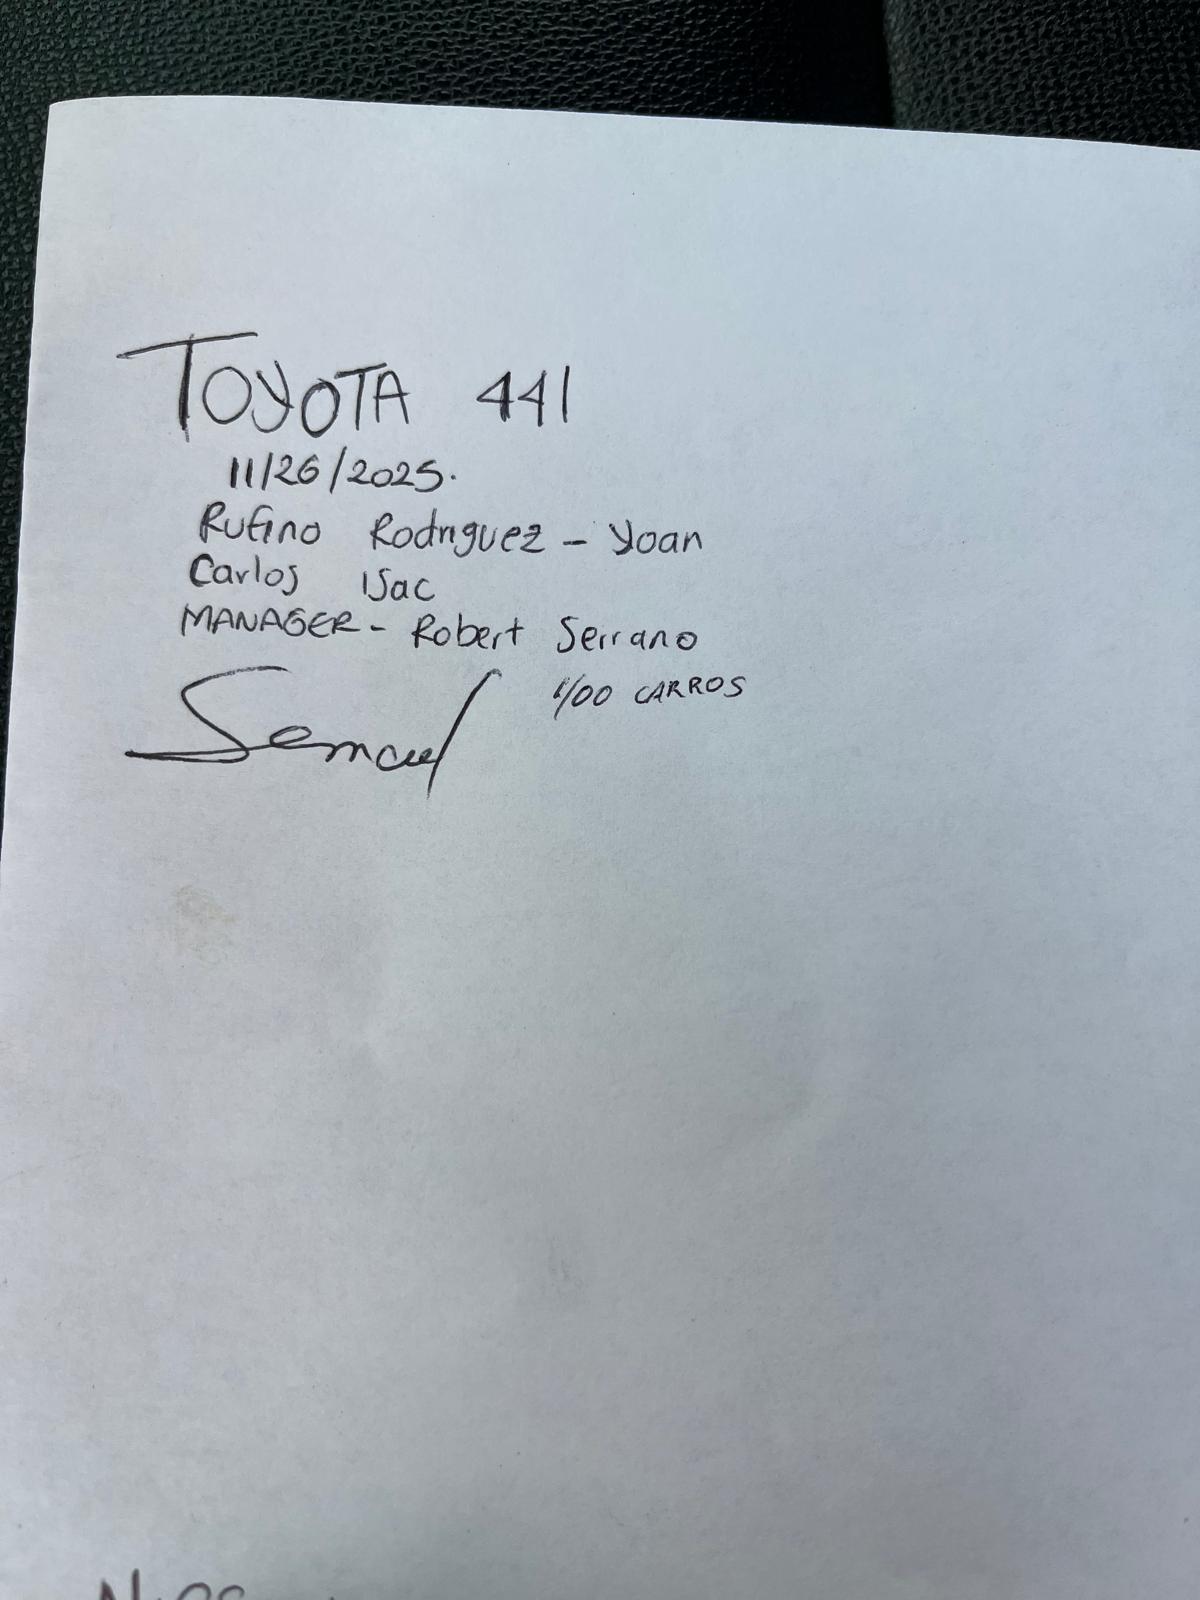 TOYOTA 441
11/26/2025.
Rufino Rodriguez - Yoan
Carlos Isac
MANAGER - Robert Serrano
100 CARROS
Semael